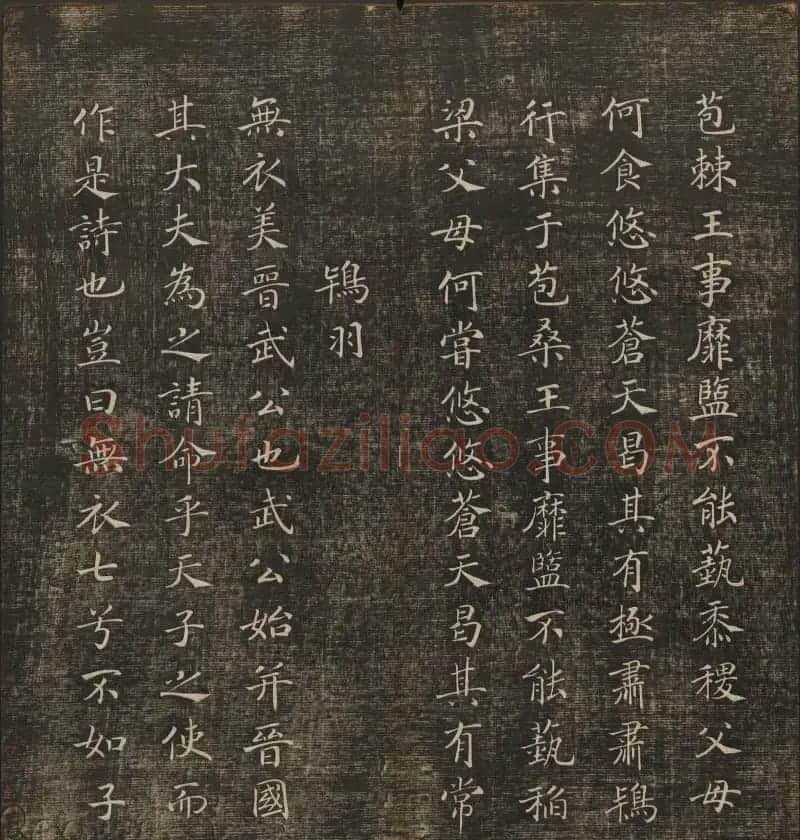 苞棘王事靡盬不能蓺黍稷父母
何食悠悠蒼天曷其有極肅肅鴇
行集于苞桑王事靡盬不能蓺稻
梁父母何嘗悠悠蒼天曷其有常
鴇羽
無衣美晉武公也武公始并晉國
其大夫為之請命乎天子之使而
作是詩也豈曰無衣七兮不如子
Shufaziliao.COM